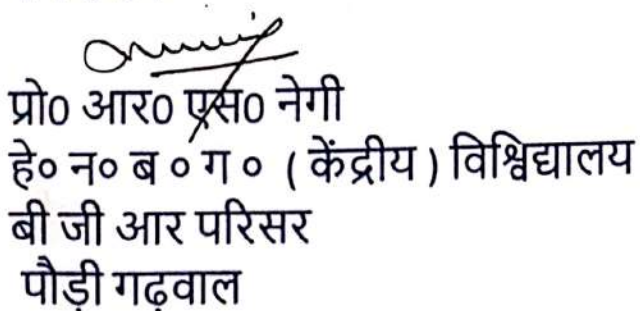 प्रो0 आर0 एस0 नेगी
हे० न० ब ० ग ० ( केंद्रीय ) विश्विद्यालय
बी जी आर परिसर
पौड़ी गढ़वाल